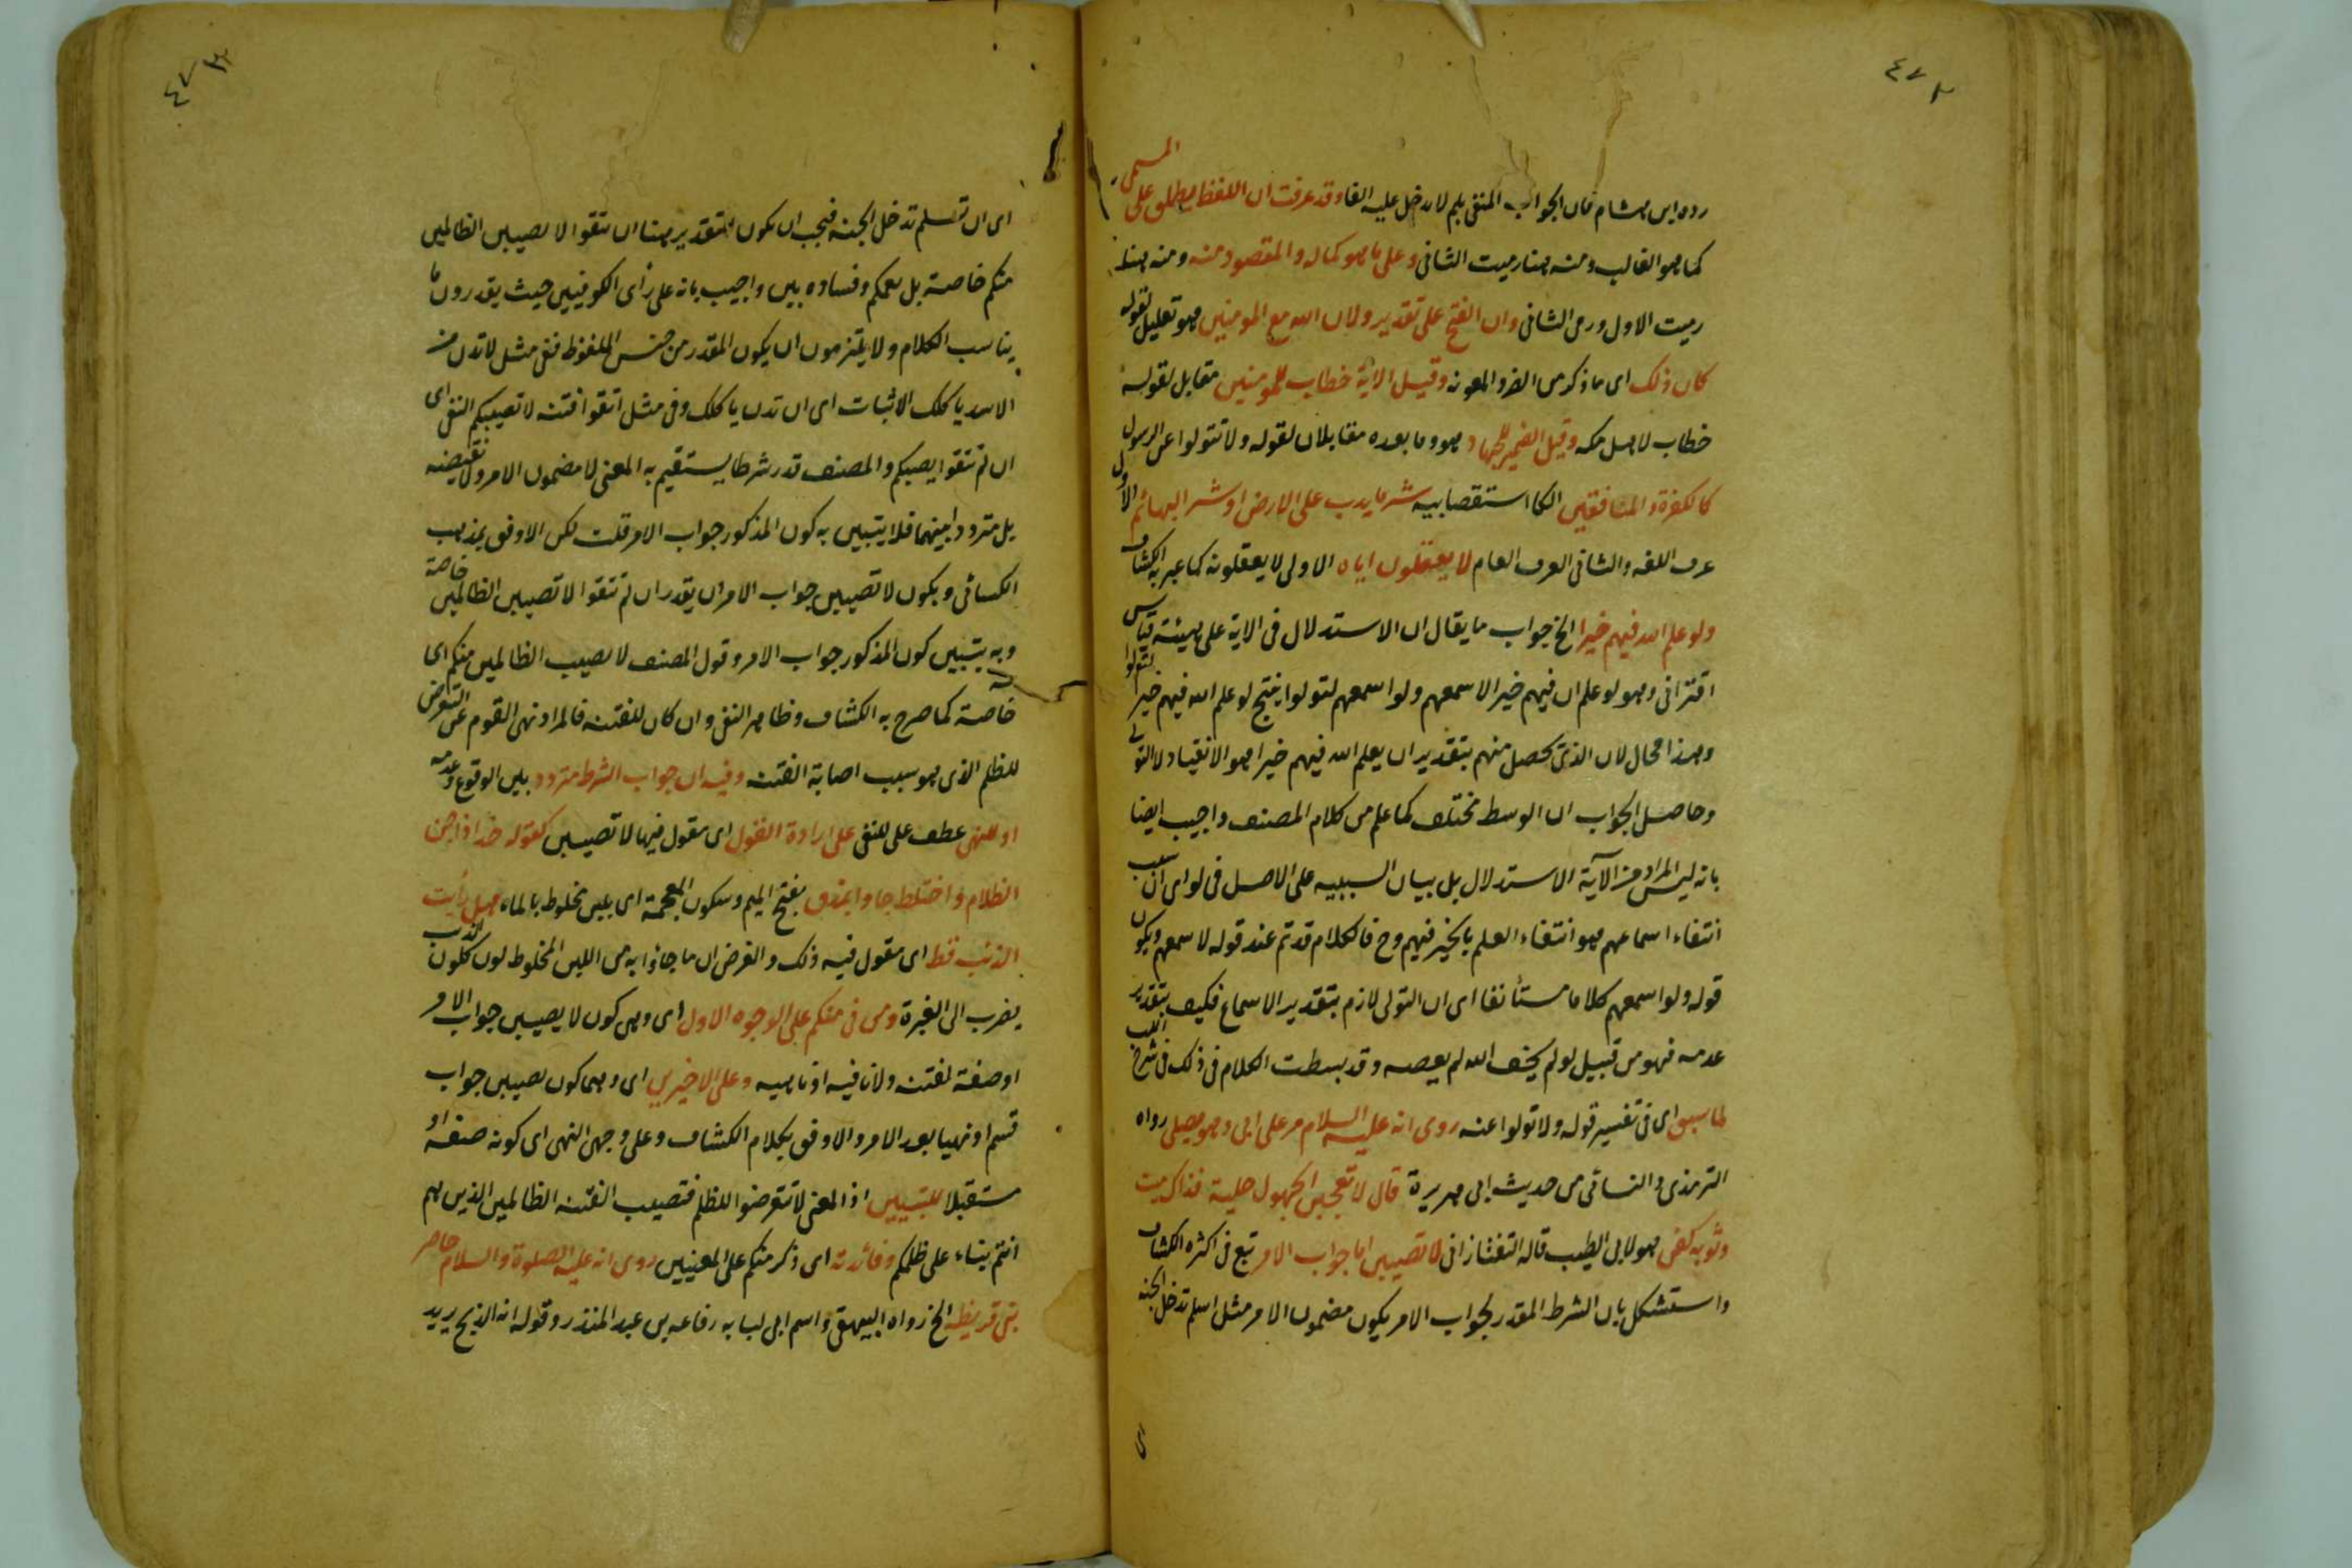 ٤٧٢
رده ابن هشام فان الجواب المنفي بلم لا يدخل عليه الفا وقد عرفت ان اللفظ يطلق على المسمى
كما هو الغالب ومنه هنا رميت الثاني وعلى ما هو كماله والمقصود منه ومنه هنا
رميت الاول ورمى الثاني وان الفتح على تقدير ولان الله مع المومنين هو تعليل لقوله
كان ذلك اى ما ذكر من الضر والمعونه وقيل الاية خطاب للمومنين مقابل لقوله
خطاب لاهل مكه وقيل الضمير للجهاد هو وما بعده مقابلان لقوله ولا تتولوا عن الرسول
كالكفرة والمنافقين الكا استقصابيه شر ما يدب على الارض او شر البهائم الاول
عرف اللغه والثاني العرف العام لا يعقلون اياه الاولى لا يعقلونه كما عبر به الكشاف
ولو علم الله فيهم خيرا الخ جواب ما يقال ان الاستدلال في الاية على هيئة قياس
اقتراني وهو لو علم ان فيهم خيرا لاسمعهم ولو اسمعهم لتولوا ينتج لو علم الله فيهم خيرا لتولوا
وهذا محال لان الذى يحصل منهم بتقدير ان يعلم الله فيهم خيرا هو الانقياد لا التولى
وحاصل الجواب ان الوسط مختلف كما علم من كلام المصنف واجيب ايضا
بانه ليس المراد من الآية الاستدلال بل بيان السببيه على الاصل في لو اى ان سبب
انتفاء اسماعهم هو انتفاء العلم بالخير فيهم وح فالكلام قد تم عند قوله لاسمعهم ويكون
قوله ولو اسمعهم كلاما مستأنفا اى ان التولى لازم بتقدير الاسماع فكيف بتقدير
عدمه فهو من قبيل لو لم يخف الله لم يعصه وقد بسطت الكلام في ذلك في شرح اللب
لما سبق اى في تفسير قوله ولا تولوا عنه روى انه عليه السلام مر على ابى وهو يصلى رواه
الترمذى والنسائى من حديث ابى هريرة قال لا تعجبن الجهول حلية فذاك ميت
وثوبه كفن هو لابى الطيب قاله التفتازانى لا تصيبن اما جواب الامر تبع في اكثره الكشاف
واستشكل بان الشرط المقدر لجواب الامر يكون مضمون الامر مثل اسلم تدخل الجنه
٤٧٣
اى ان تسلم تدخل الجنه فيجب ان يكون التقدير هنا ان تتقوا لا تصيبن الظالمين
منكم خاصة بل تعمكم وفساده بين واجيب بانه على رأى الكوفيين حيث يقدرون ما
يناسب الكلام ولا يلتزمون ان يكون المقدر من جنس الملفوظ ففى مثل لا تدن من
الاسد ياكلك الاثبات اى ان تدن ياكلك وفى مثل اتقوا فتنه لا تصيبكم النفى اى
ان لم تتقوا يصبكم والمصنف قدر شرطا يستقيم به المعنى لا مضمون الامر ولا نقيضه
بل مترددا بينهما فلا يتبين به كون المذكور جواب الامر قلت لكن الاوفق بمذهب
الكسائى ويكون لا تصيبن جواب الامر ان يقدر ان لم تتقوا لا تصيبن الظالمين خاصة
وبه يتبين كون المذكور جواب الامر وقول المصنف لا تصيب الظالمين منكم اى
خاصة كما صرح به الكشاف وظاهر النفى وان كان للفتنه فالمراد نهى القوم عن التعرض
للظلم الذى هو سبب اصابة الفتنه وفيه ان جواب الشرط متردد بين الوقوع وعدمه
او للنهى عطف على للنفى على ارادة القول اى مقول فيها لا تصيبن كقوله حتى اذا جن
الظلام واختلط جاوا بمذق بفتح الميم وسكون المعجمة اى بلبن مخلوط بالماء هل رأيت
الذئب قط اى مقول فيه ذلك والغرض ان ما جاؤا به من اللبن المخلوط لون كلون الذئب
يضرب الى الغبرة ومن فى منكم على الوجوه الاول اى وهى كون لا يصيبن جواب الامر
او صفة لفتنه ولا نافيه او ناهيه وعلى الاخيرين اى وهما كون تصيبن جواب
قسم او نهيا بعد الامر والاوفق بكلام الكشاف وعلى وجهى النهى اى كونه صفة او
مستقبلا للتبيين اذ المعنى لا تتعرضوا للظلم فتصيب الفتنه الظالمين الذين هم
انتم بناء على ظلمكم وفائدته اى ذكر منكم على المعنيين روى انه عليه الصلوة والسلام حاصر
بنى قريظه الخ رواه البيهقى واسم ابى لبابه رفاعه بن عبد المنذر وقوله انه الذبح يريد